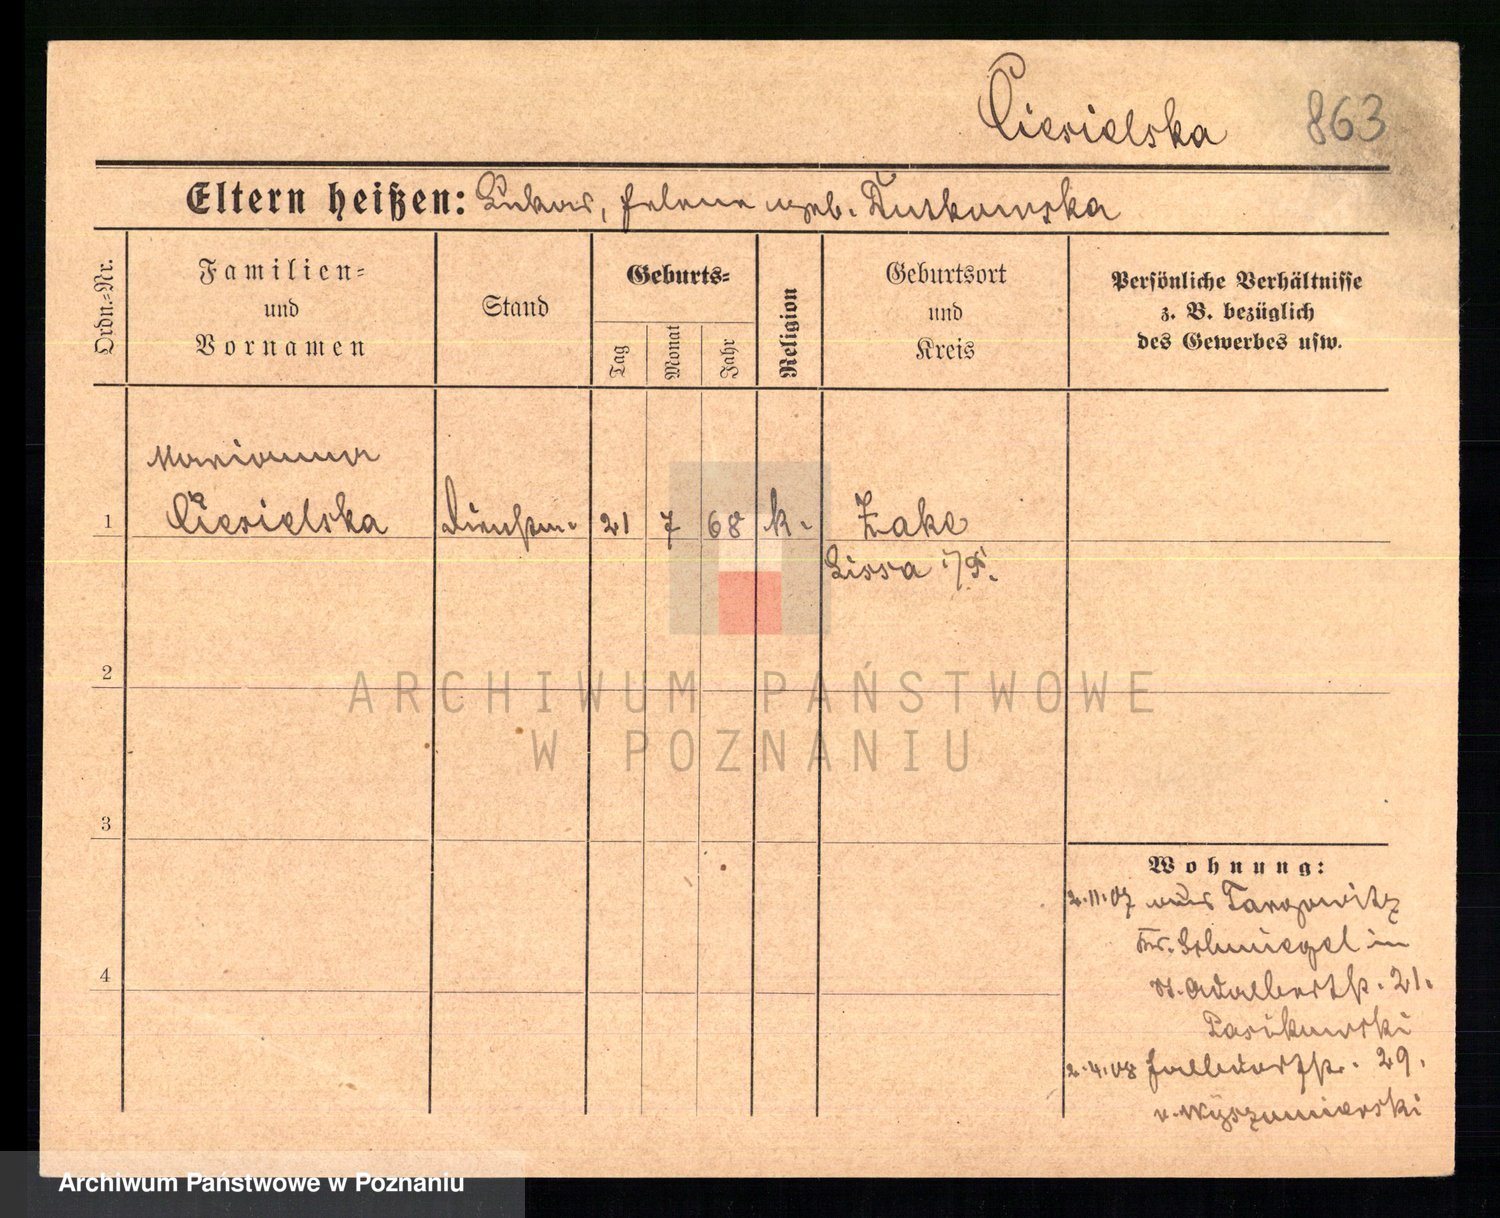 Ciesielska 863
Eltern heißen: Lukas, Helene geb. Dutkowska
Ordn.-Nr.
Familien-
und
Vornamen
Stand
Geburts-
Tag
Monat
Jahr
Religion
Geburtsort
und
Kreis
Persönliche Verhältnisse
z. B. bezüglich
des Gewerbes usw.
Marianna
1 Ciesielska Dienstm. 21 7 68 k. Zake
Lissa i/P.
2
ARCHIWUM PAŃSTWOWE
W POZNANIU
3
Wohnung:
2.11.07 aus Targowitz
Kr. Schmiegel in
St. Adalbertstr. 21.
4
2.4.08 Halbdorfstr. 29.
Archiwum Państwowe w Poznaniu